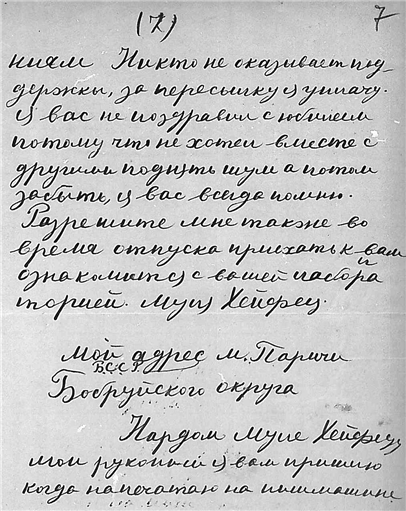 (7) 7
ниям Никто не оказивает под-
держки, за пересылку я уплачу.
Я вас не поздравил с юбилеем
потому что не хотел вместе с
другими поднять шум а потом
забыть, я вас всегда помню.
Разрешите мне также во
время отпуска приехать к вам и
ознакомится с вашей лабора
торией. Муля Хейфец.
Мой адрес м. Паричи
Б.С.С.Р.
Бобруйского округа
Нардом Муле Хейфецу
мои рукописи я вам пришлю
когда напечатаю на пишмашине